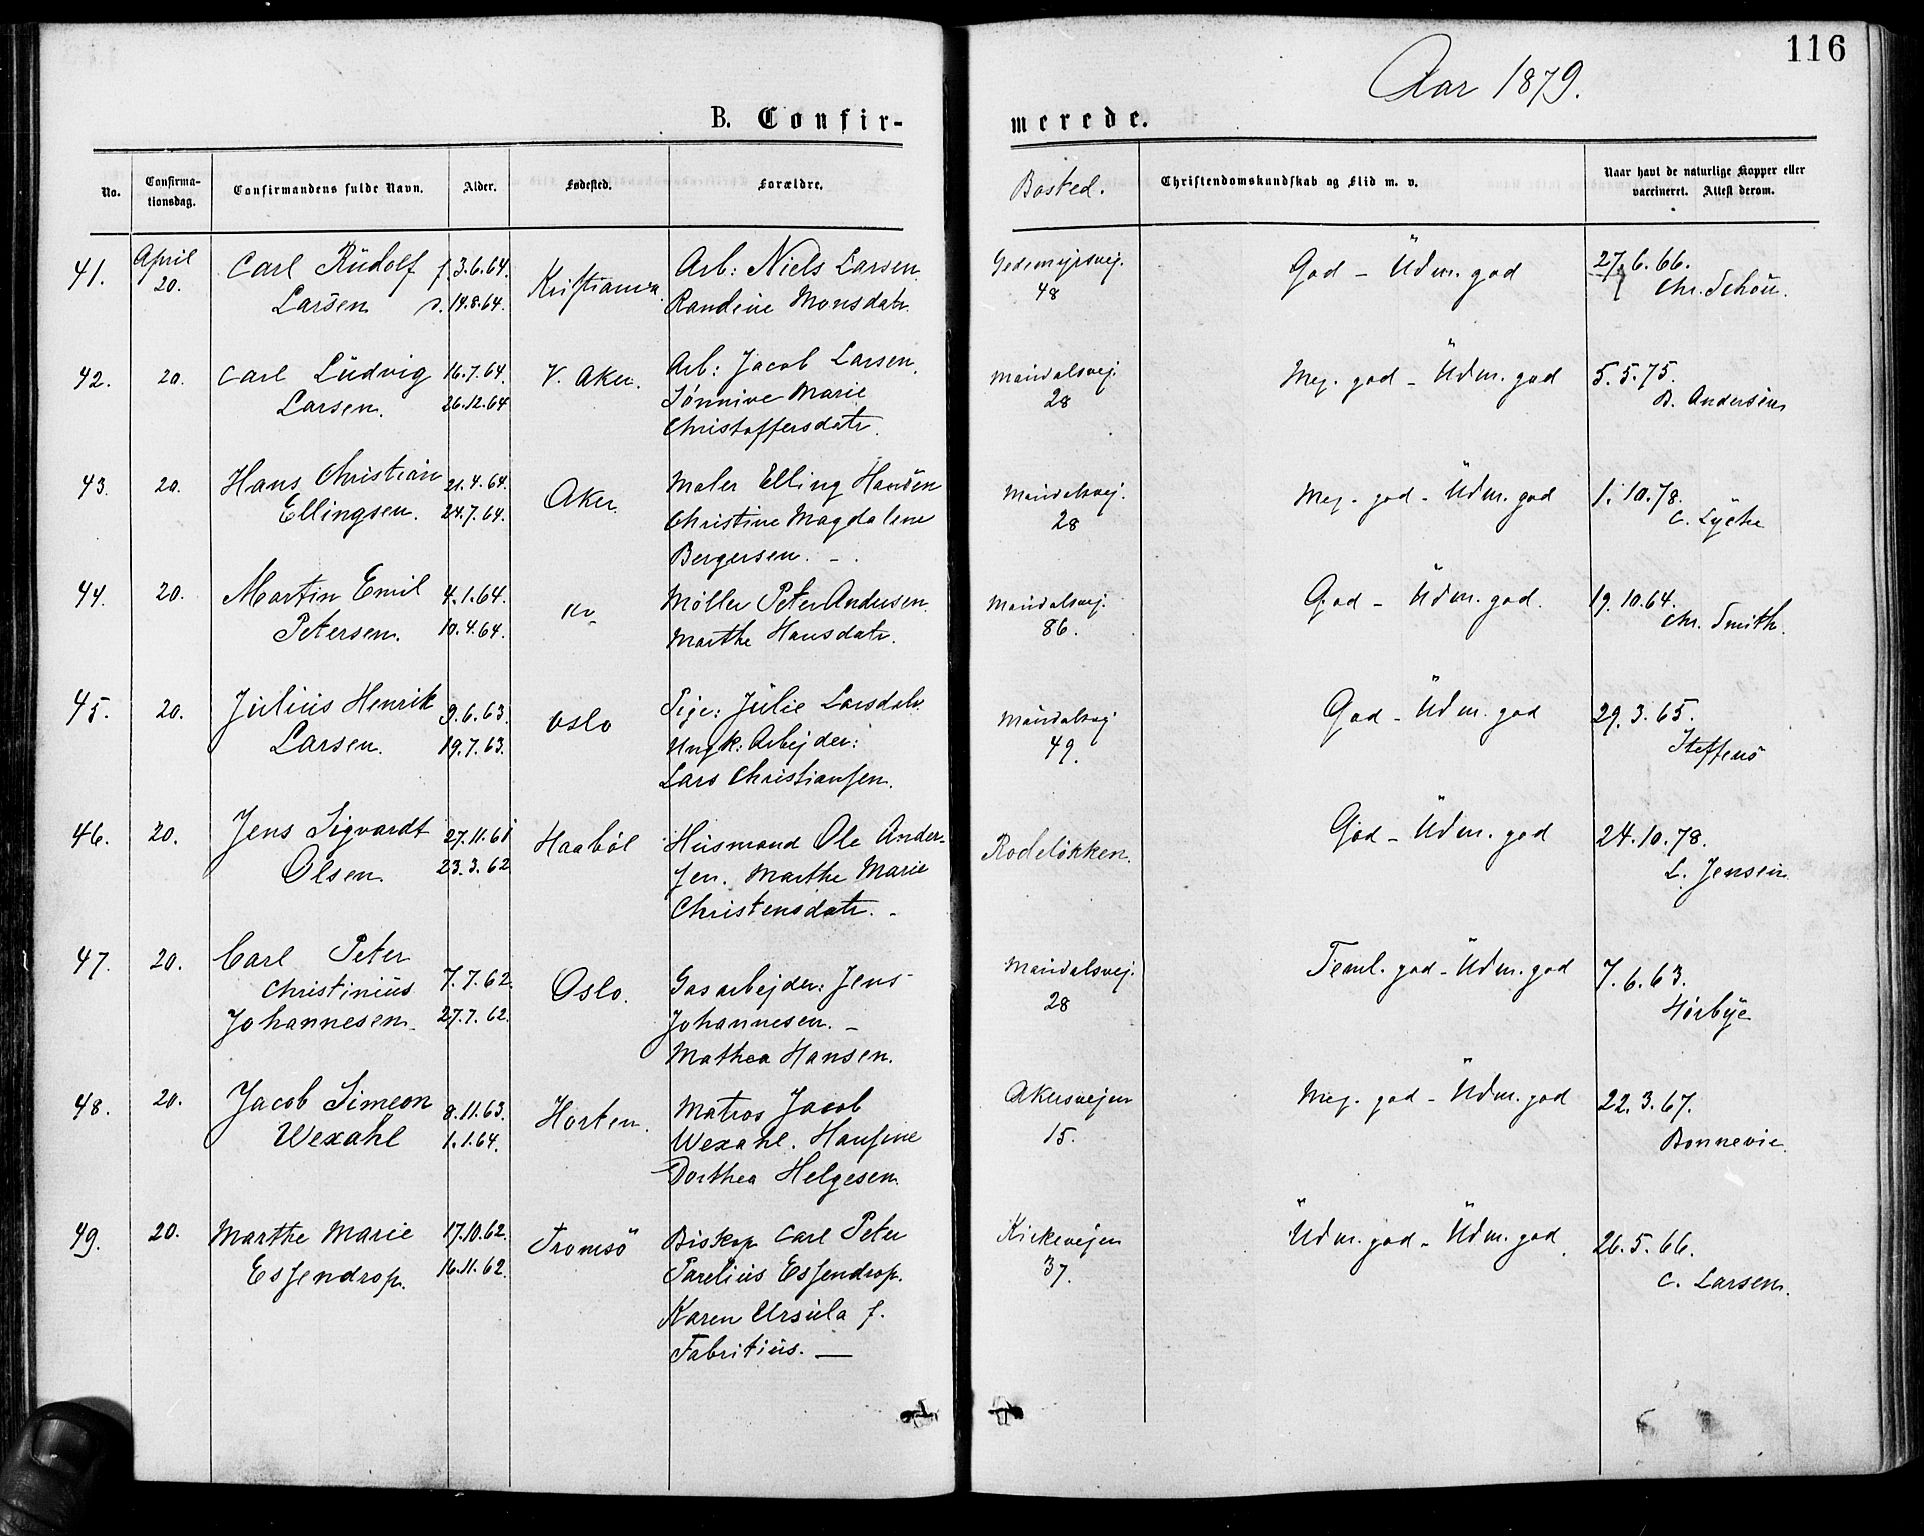 116
Aar 1879.
B. Confir-
merede.
No.
Confirma-
tionsdag.
Confirmandens fulde Navn.
Alder.
Fødested.
Forældre.
Bosted.
Christendomskundskab og Flid m. v.
Naar havt de naturlige Kopper eller
vaccineret. Attest derom.
41.
April
20.
Carl Rudolf
Larsen
f. 3.6.64.
d. 14.8.64.
Kristiania
Arb: Niels Larsen.
Randine Monsdatr.
Gedemyrsvej.
48
God - Udm. god
27.6.66.
Chr. Schou.
42.
20.
Carl Ludvig
Larsen.
16.7.64.
26.12.64
V. Aker.
Arb: Jacob Larsen.
Sønnive Marie
Christoffersdatr.
Maridalsvej.
28
Meg. god - Udm. god
5.5.75.
B. Andersen
43.
20.
Hans Christian
Ellingsen.
21.4.64.
24.7.64.
Aker.
Maler Elling Hansen
Christine Magdalene
Bergersen. -
Maridalsvej.
28
Meg. god - Udm. god
1.10.78.
C. Lyche
44.
20.
Martin Emil
Petersen.
4.1.64.
10.4.64.
Kr.
Møller Peter Andersen.
Marthe Hansdatr.
Maridalsvej.
86.
God - Udm. god.
19.10.64.
Chr. Smith.
45.
20.
Julius Henrik
Larsen.
9.6.63.
19.7.63.
Oslo
Pige: Julie Larsdatr.
Ungk: Arbejder:
Lars Christiansen.
Maridalsvej
49.
God - Udm. god
29.3.65.
Steffens
46.
20.
Jens Sigvardt
Olsen.
27.11.61
23.3.62
Haabøl
Husmand Ole Ander-
sen. Marthe Marie
Christensdatr. -
Rodeløkken.
God - Udm. god
24.10.78.
L. Jensen
47.
20.
Carl Peter
Christinius
Johannesen.
7.7.62.
27.7.62.
Oslo.
Gasarbejder: Jens
Johannesen. -
Mathea Hansen.
Maridalsvej.
28
Teml. god - Udm. god
7.6.63.
Hørbye
48.
20.
Jacob Simeon
Wexahl
8.11.63.
1.1.64.
Horten.
Matros Jacob
Wexahl. Hansine
Dorthea Helgesen.
Akersvejen
15.
Meg. god - Udm. god
22.3.67.
Bonnevie.
49.
20.
Marthe Marie
Essendrop.
17.10.62.
16.11.62.
Tromsø
Biskop Carl Peter
Parelius Essendrop.
Karen Ursula f.
Fabritius. —
Kirkevejen
37.
Udm. god - Udm. god.
26.5.66.
C. Larsen.